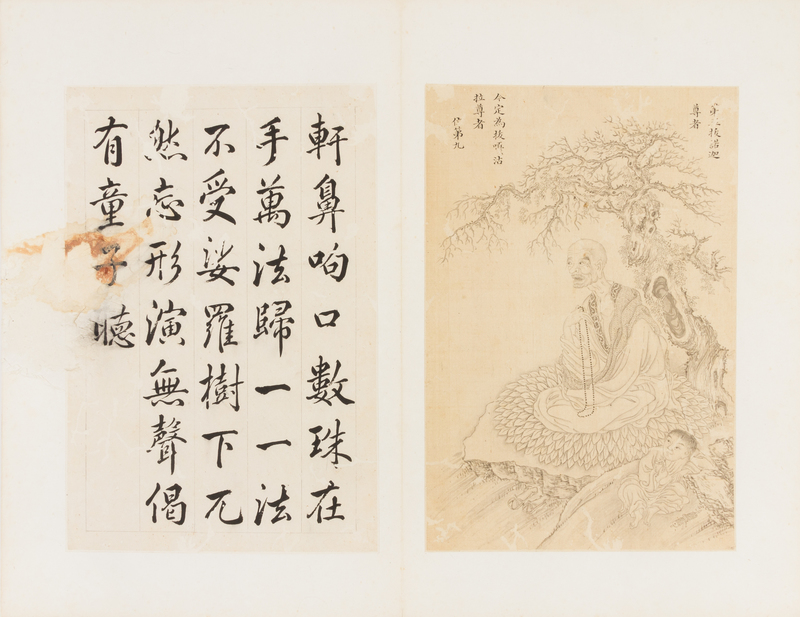 軒鼻呴口數珠在
手萬法歸一一法
不受娑羅樹下兀
然忘形演無聲偈
有童子聽
第拔諾迦
尊者
今定為拔嘎沽
拉尊者
位第九